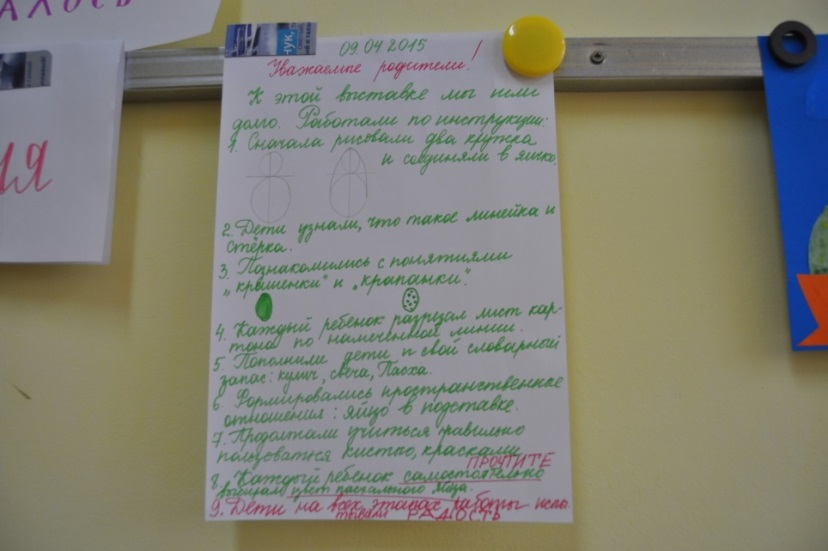 АЛОСЬ
ИЯ
09.04.2015
Уважаемые родители!
К этой выставке мы шли
долго. Работали по инструкции:
1. Сначала рисовали два кружка
и соединяли в яичко.
2. Дети узнали, что такое линейка и
стёрка.
3. Познакомились с понятиями
„крашенки" и „крапанки".
4. Каждый ребенок разрезал лист кар-
тона по намеченной линии.
5. Пополнили дети и свой словарный
запас: кулич, свеча, Пасха.
6. Формировались пространственные
отношения: яйцо в подставке.
7. Продолжали учиться правильно
пользоваться кистью, красками.
ПРОЧТИТЕ
8. Каждый ребенок самостоятельно
выбирал цвет пасхального яйца.
9. Дети на всех этапах работы испы-
тывали РАДОСТЬ